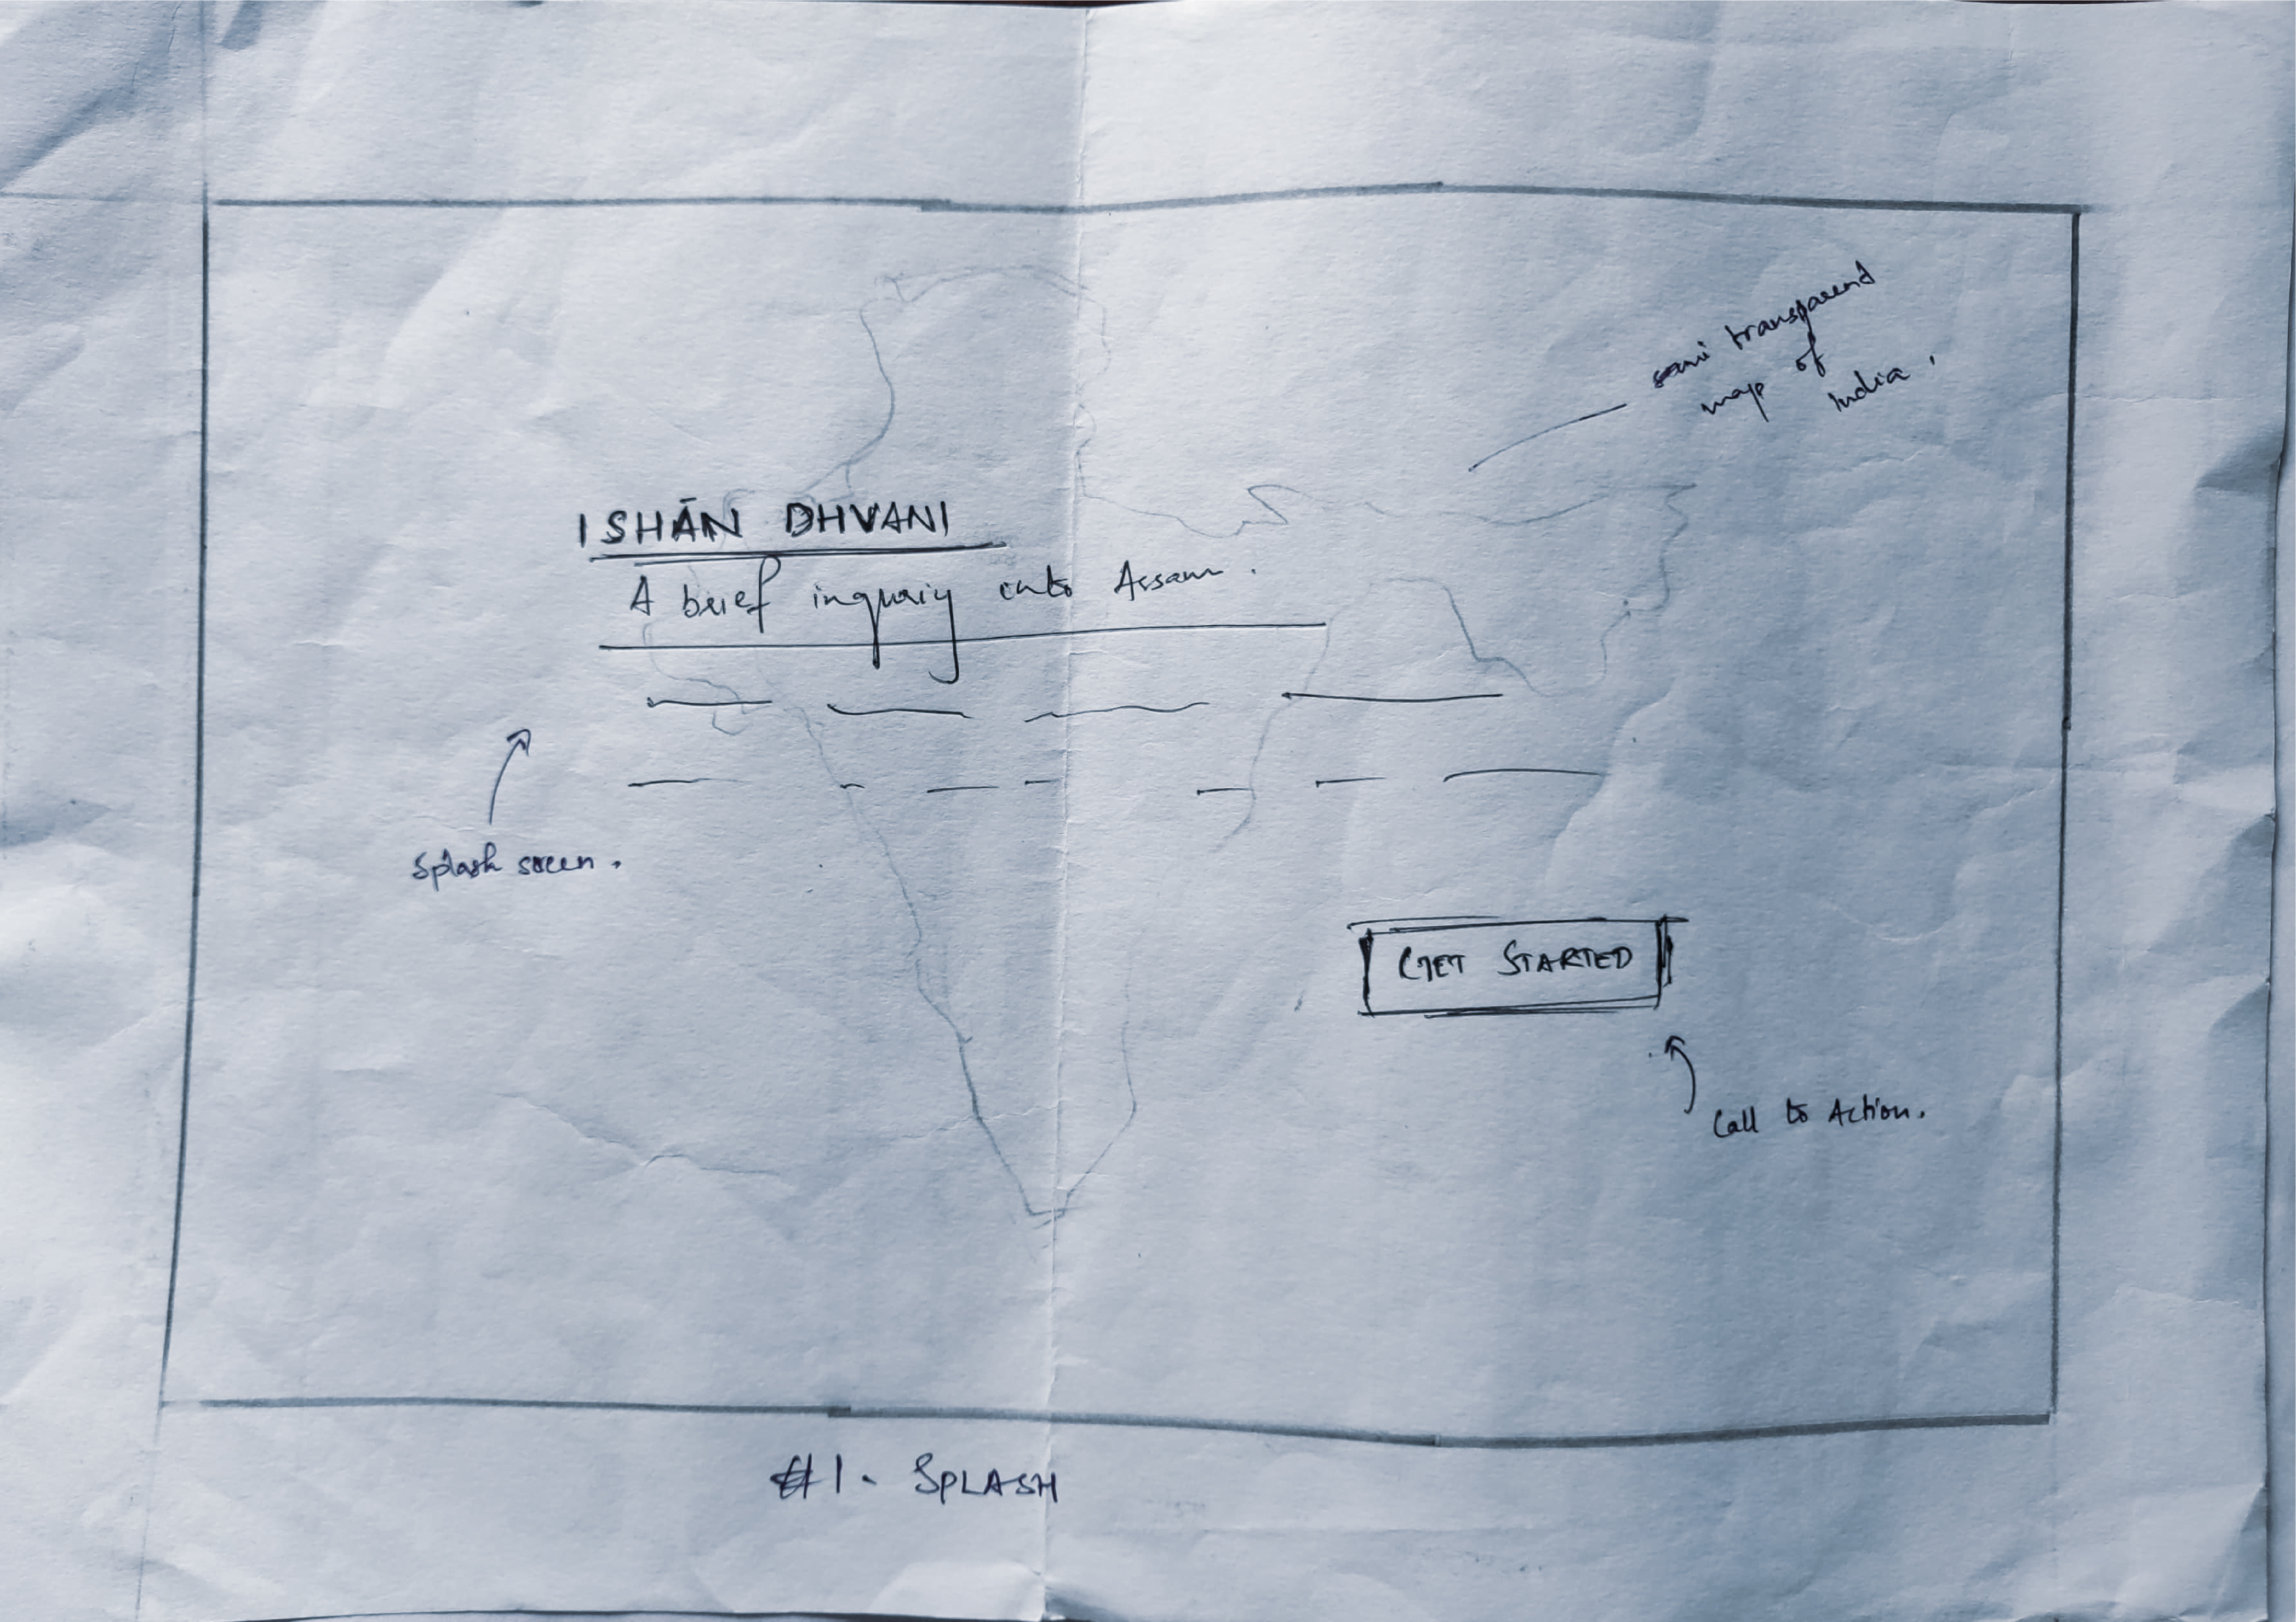 semi transparent
map of
India.
ISHĀN DHVANI
A brief inquiry into Assam.
Splash screen.
GET STARTED
Call to Action.
#1. SPLASH